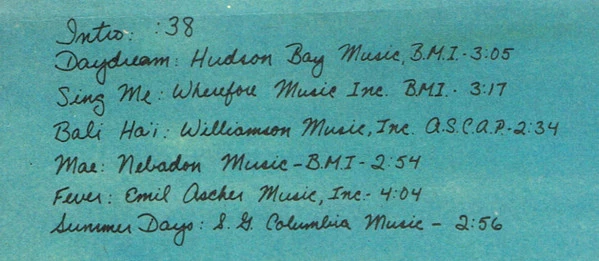 Intro: :38
Daydream: Hudson Bay Music, B.M.I.-3:05
Sing Me: Wherefore Music Inc. B.M.I.- 3:17
Bali Ha'i: Williamson Music, Inc. A.S.C.A.P.-2:34
Mae: Nebadon Music-B.M.I-2:54
Fever: Emil Ascher Music, Inc- 4:04
Summer Days: S.G. Columbia Music - 2:56